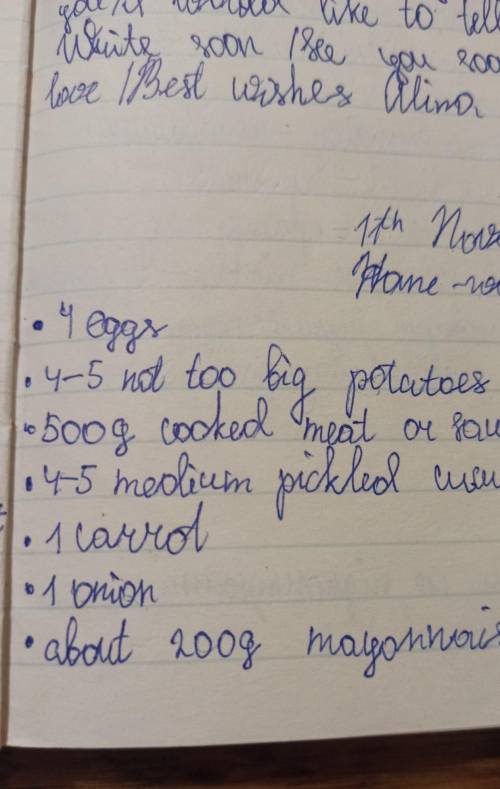 would like to tell
Write soon / See you soo
love / Best wishes Alina
11th Nove
Home-wo
• 4 eggs
• 4-5 not too big potatoes
• 500g cooked meat or sau
• 4-5 medium pickled cucu
• 1 carrot
• 1 onion
• about 200g mayonnais